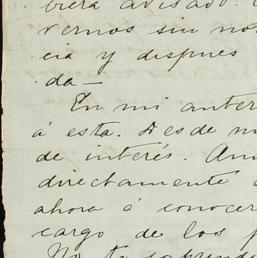 biera avisado.
vernos sin no
cia y dispues
da—
En mi anter
á esta. Desde m
de interés. Am
directamente
ahora á conocer
cargo de los
No te sorprend